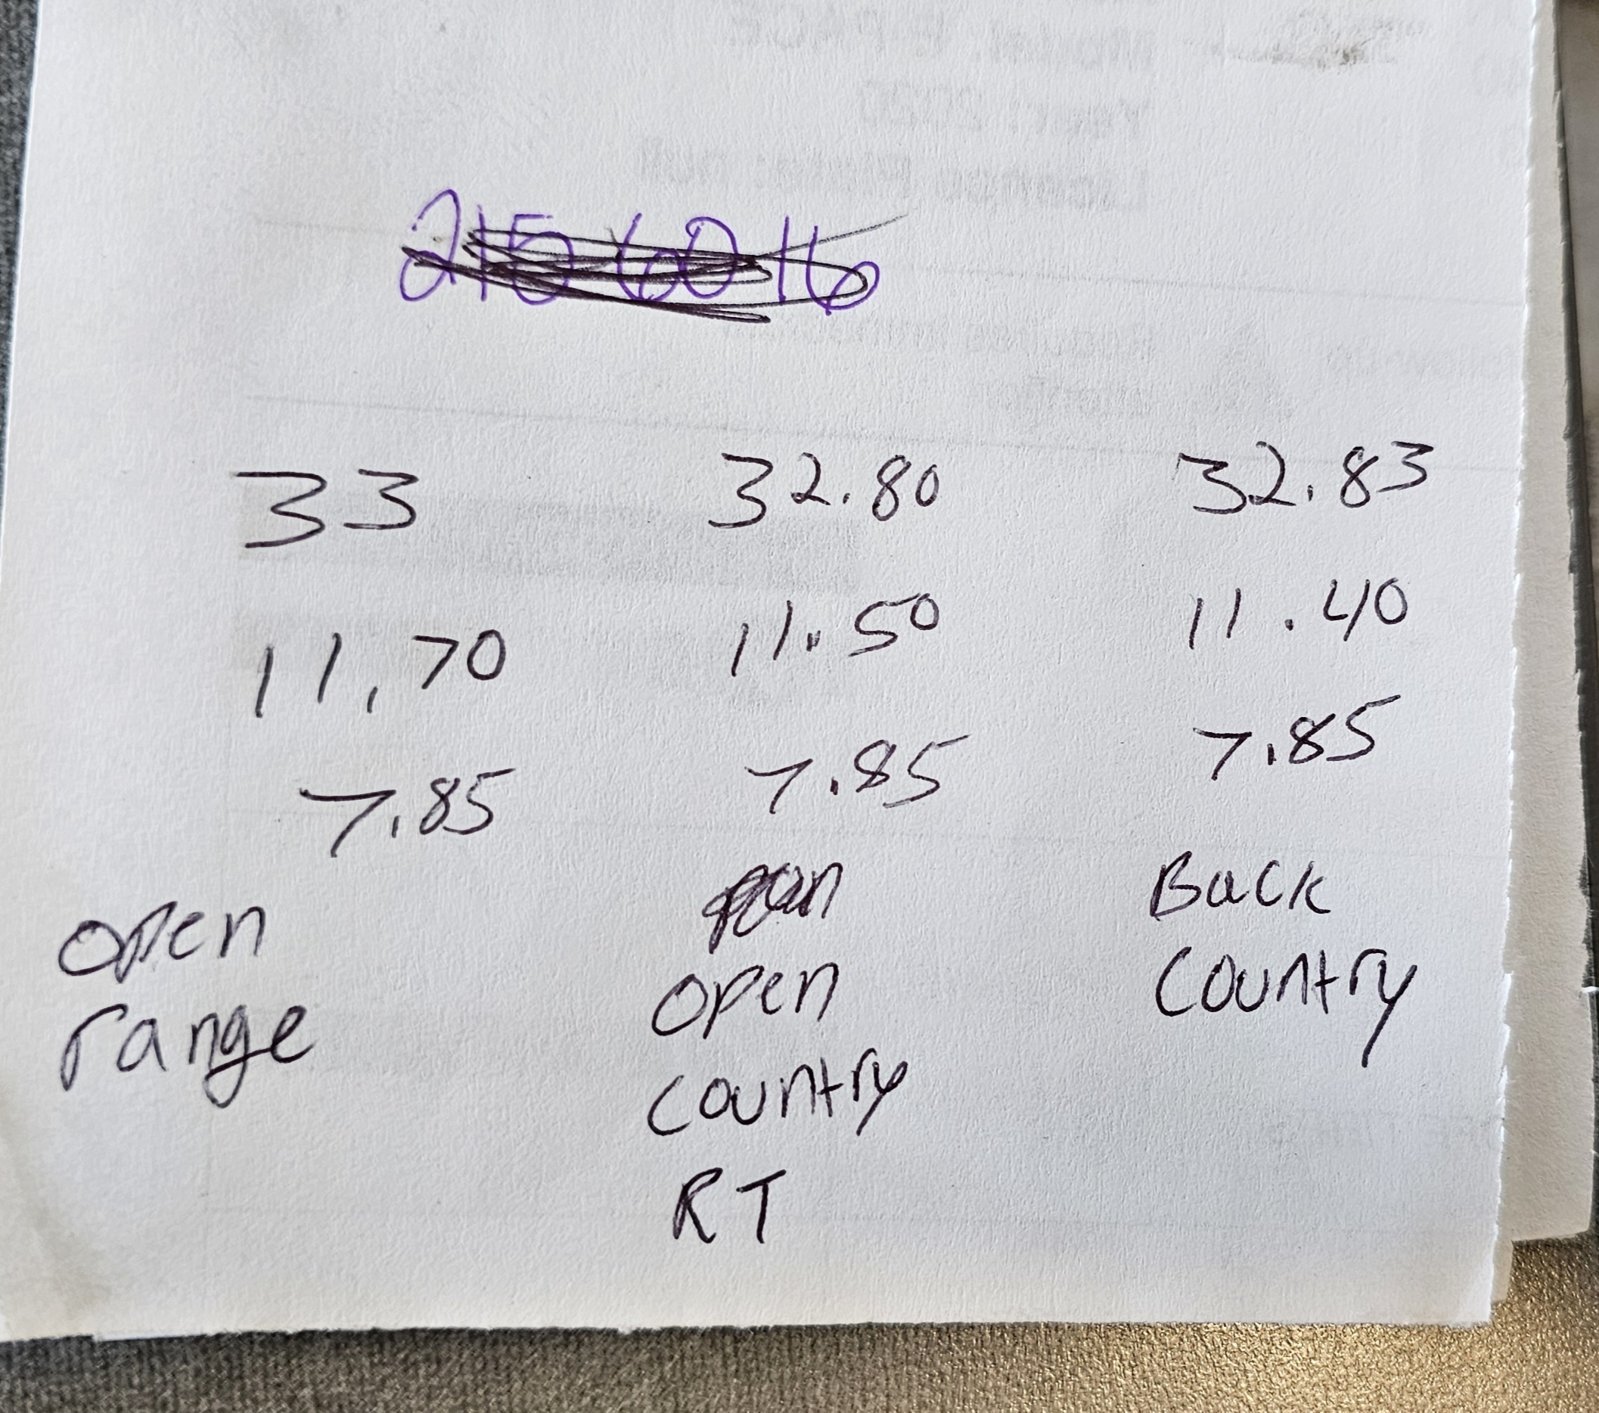 2156016
33 32.80 32.83
11.70 11.50 11.40
7.85 7.85 7.85
open range
open country RT
Back country